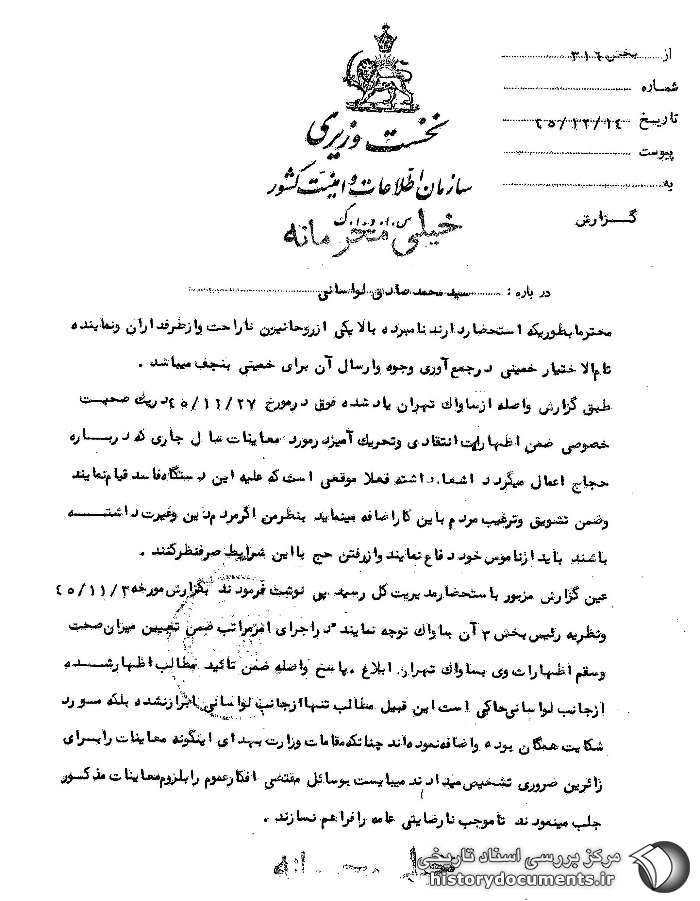 از بخش ۳۱۶
شماره
تاریخ ۴۵/۱۲/۱۴
پیوست
به
گزارش
نخست وزیری
سازمان اطلاعات و امنیت کشور
س.ا.و.ا.ک
خیلی محرمانه
درباره : سید محمد صادق لواسانی
محترما بطوریکه استحضار دارند نامبرده بالا یکی از روحانیون ناراحت و از طرفداران و نماینده
تام الاختیار خمینی در جمع آوری وجوه و ارسال آن برای خمینی بنجف میباشد .
طبق گزارش واصله از ساواک تهران یاد شده فوق در مورخ ۴۵/۱۱/۲۷ در یک صحبت
خصوصی ضمن اظهارات انتقادی و تحریک آمیز در مورد معاینات سال جاری که در باره
حجاج اعمال میگردد اشعار داشته فعلا موقعی است که علیه این دستگاه فاسد قیام نمایند
وضمن تشویق و ترغیب مردم باین کار اضافه مینماید بنظر من اگر مردم دین و غیرت داشتـــه
باشند باید از ناموس خود دفاع نمایند و از رفتن حج با این شرایط صرفنظر کنند .
عین گزارش مزبور باستحضار مدیریت کل رسید پی نوشت فرمودند بگزارش مورخه ۴۵/۱۱/۳
ونظریه رئیس بخش ۳ آن ساواک توجه نمایند در اجرای امر مراتب ضمن تعیین میزان صحت
وسقم اظهارات وی بساواک تهران ابلاغ . پاسخ واصله ضمن تائید مطالب اظهار شـــده
از جانب لواسانی حاکی است این قبیل مطالب تنها از جانب لواسانی ابراز نشده بلکه مـورد
شکایت همگان بوده و اضافه نموده اند چنانکه مقامات وزارت بهداری اینگونه معاینات را برای
زائرین ضروری تشخیص میدادند میبایست بوسائل مقتضی افکار عموم را بلزوم معاینات مذکـور
جلب مینمودند تا موجب نارضایتی عامه را فراهم نسازند .
خیلی محرمانه
مرکز بررسی اسناد تاریخی
historydocuments.ir